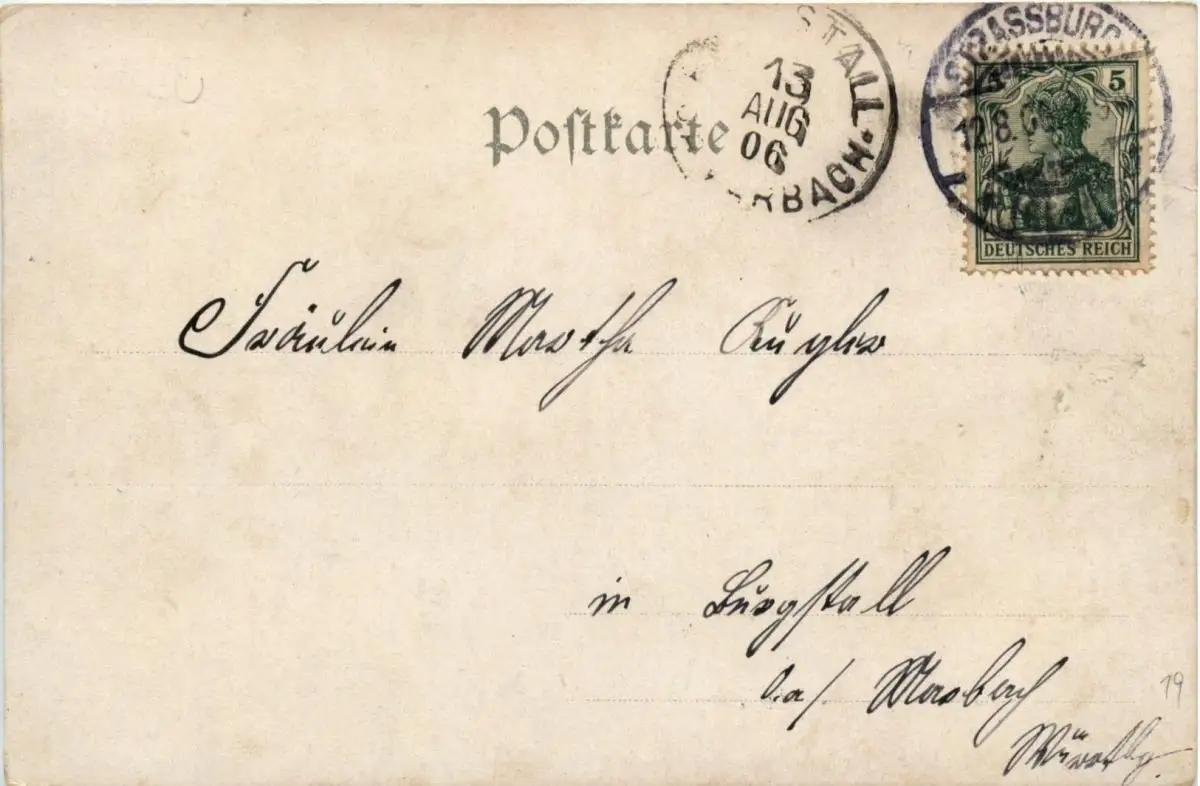 Postkarte
STALL
13
AUG
06
RBACH
STRASSBURG
12.8.
5
DEUTSCHES REICH
Fräulein Martha Kugler
in Burgstall
a/ Marbach
Württbg
19